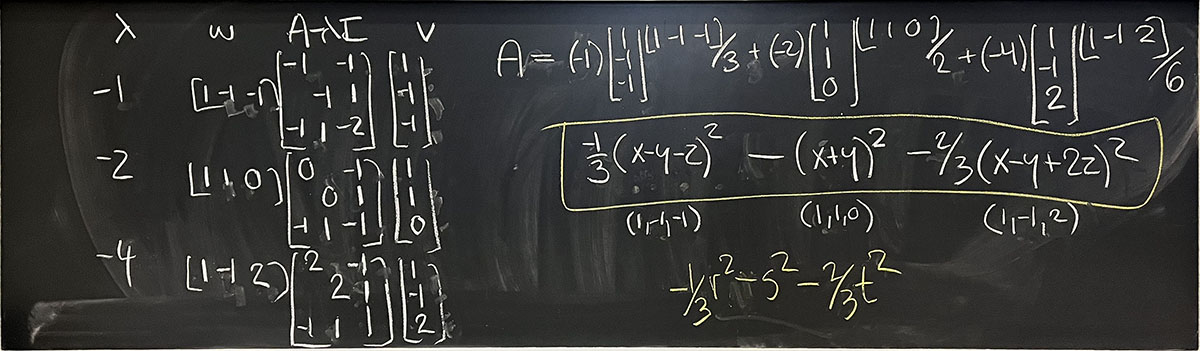 λ w A-λI v
-1 [1 -1 -1] [-1 -1; -1 1; -1 1 -2] [1; -1; -1]
-2 [1 1 0] [0 -1; 0 1; -1 1 -1] [1; 1; 0]
-4 [1 -1 2] [2 -1; 2 1; -1 1 1] [1; -1; 2]
A = (-1)[1; -1; -1][1 -1 -1]/3 + (-2)[1; 1; 0][1 1 0]/2 + (-4)[1; -1; 2][1 -1 2]/6
-1/3(x-y-z)² - (x+y)² - 2/3(x-y+2z)²
(1,-1,-1) (1,1,0) (1,-1,2)
-1/3r² - s² - 2/3t²